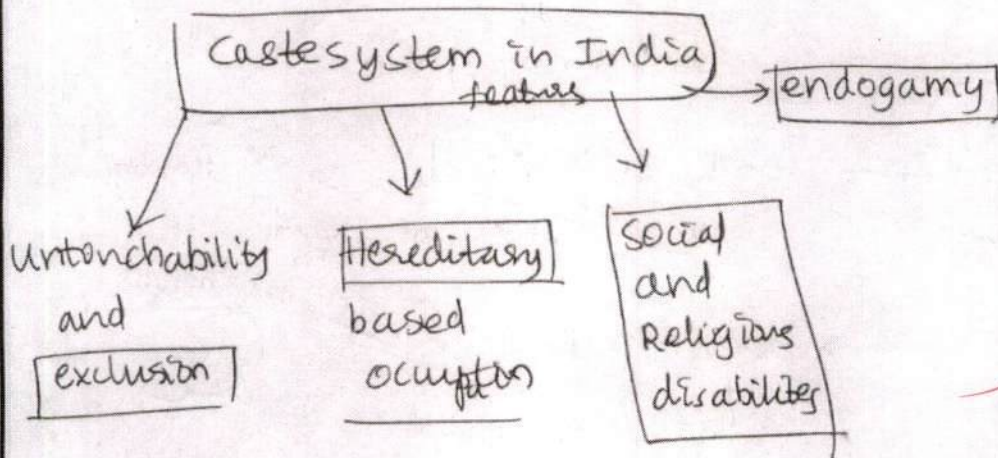 Caste system in India
features
endogamy
Untouchability
and
exclusion
Hereditary
based
occuption
Social
and
Religious
disabilites